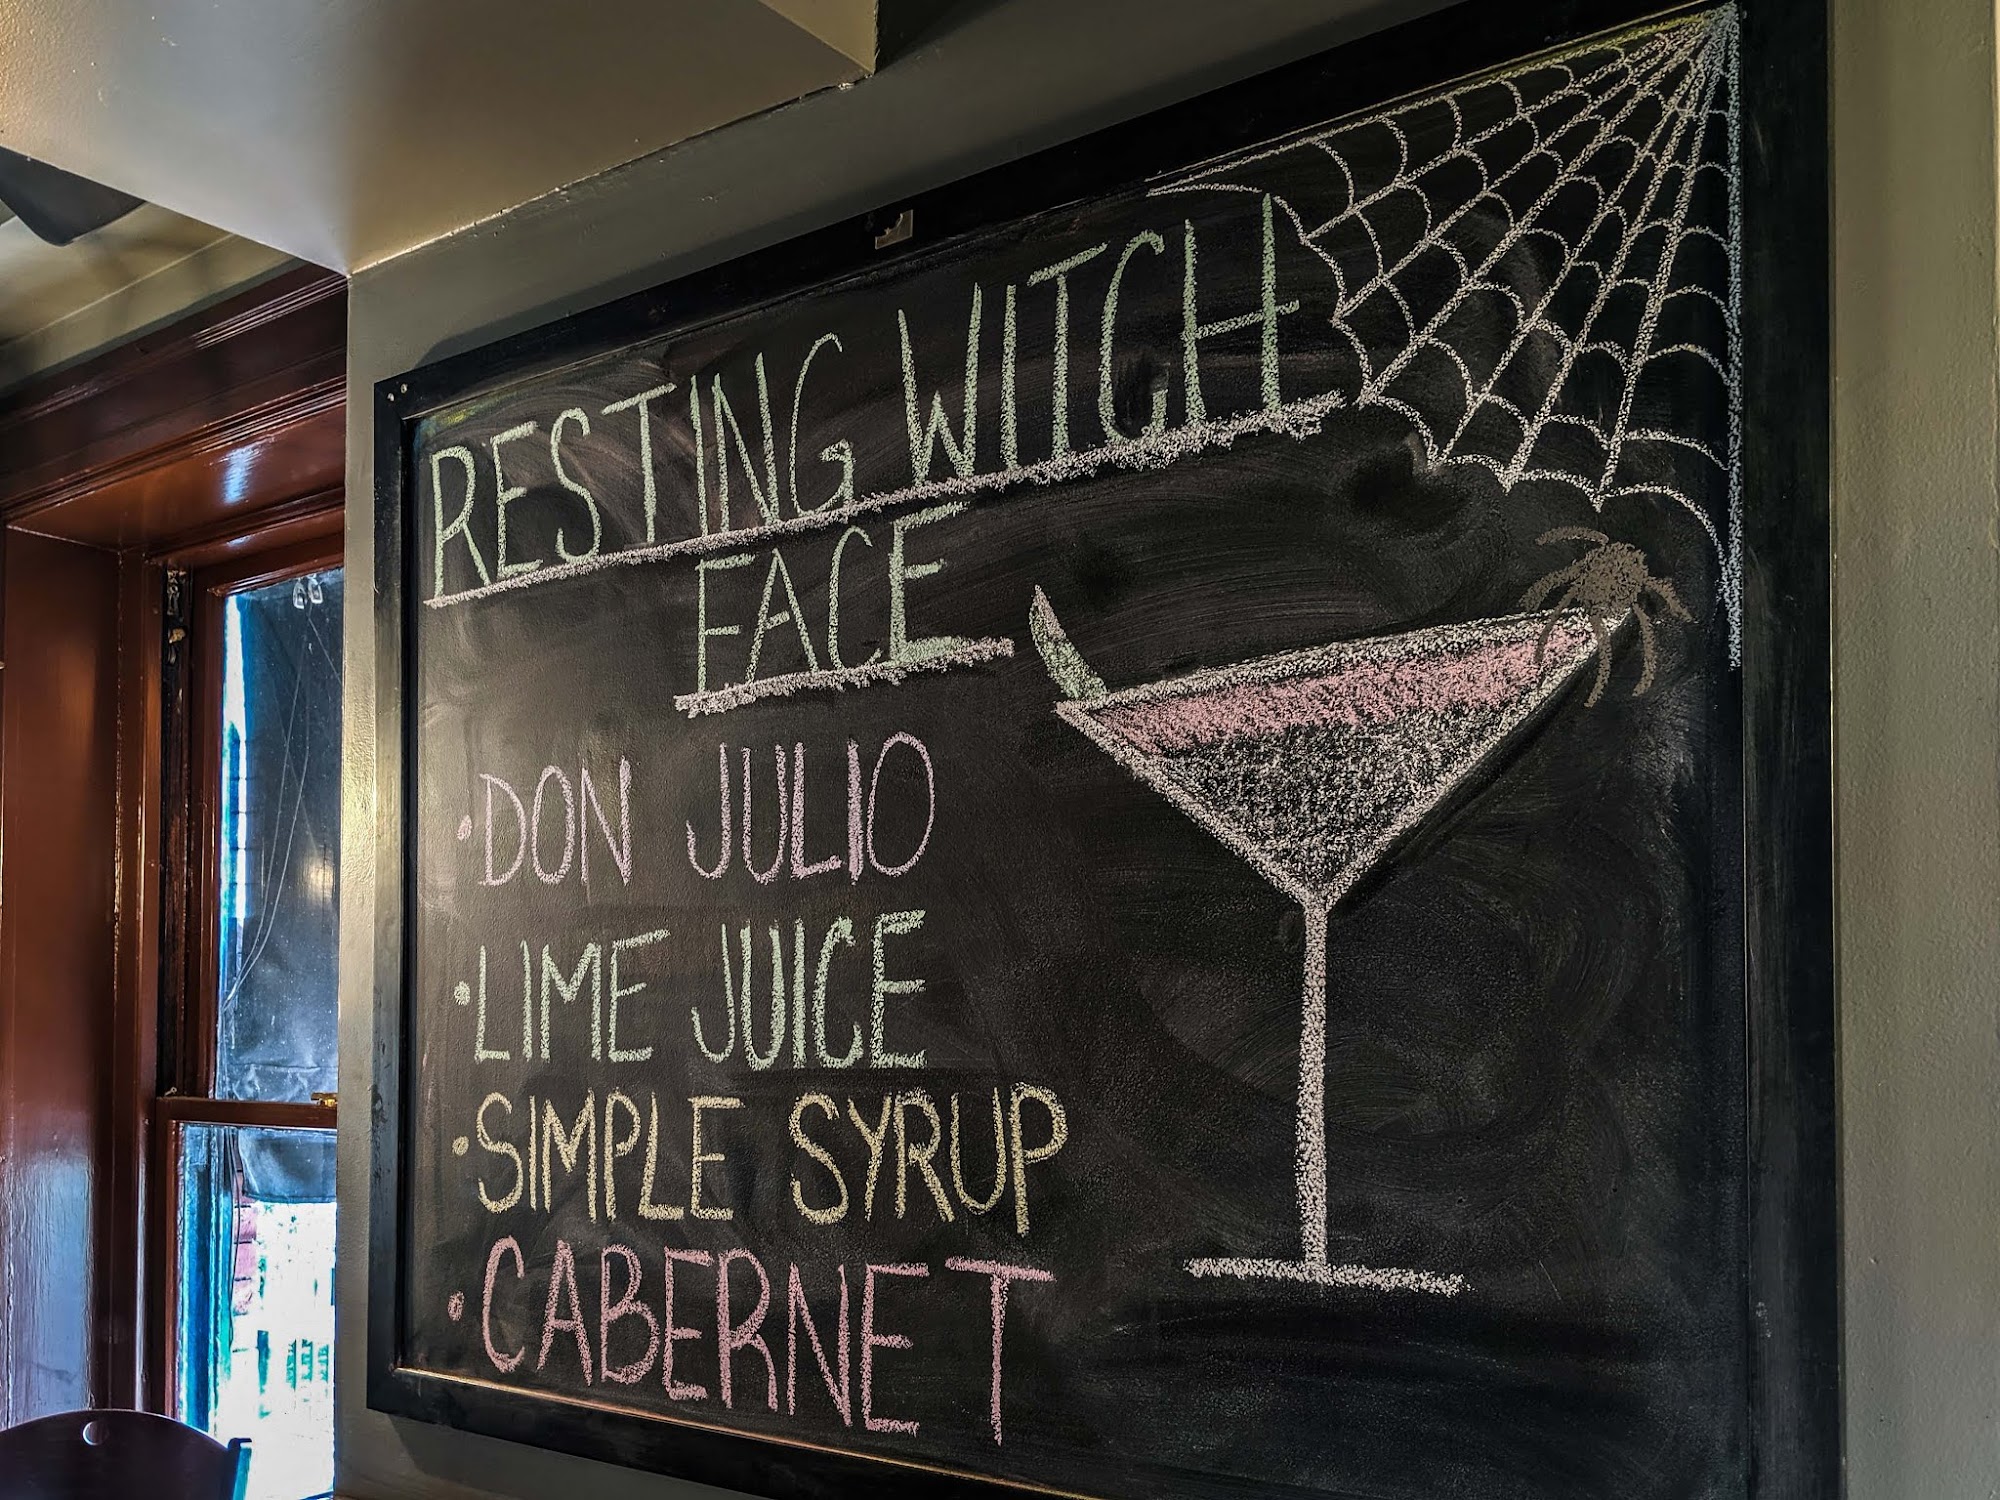 RESTING WITCH
FACE
• DON JULIO
• LIME JUICE
• SIMPLE SYRUP
• CABERNET